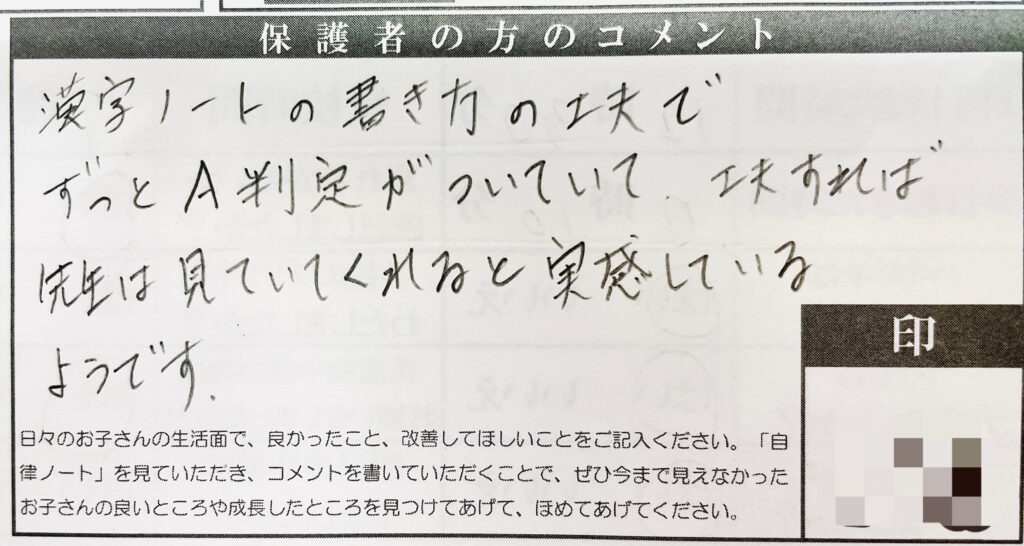 保護者の方のコメント
漢字ノートの書き方の工夫で
ずっとA判定がついていて、工夫すれば
先生は見ていてくれると実感している
ようです。
印
日々のお子さんの生活面で、良かったこと、改善してほしいことをご記入ください。「自
律ノート」を見ていただき、コメントを書いていただくことで、ぜひ今まで見えなかった
お子さんの良いところや成長したところを見つけてあげて、ほめてあげてください。